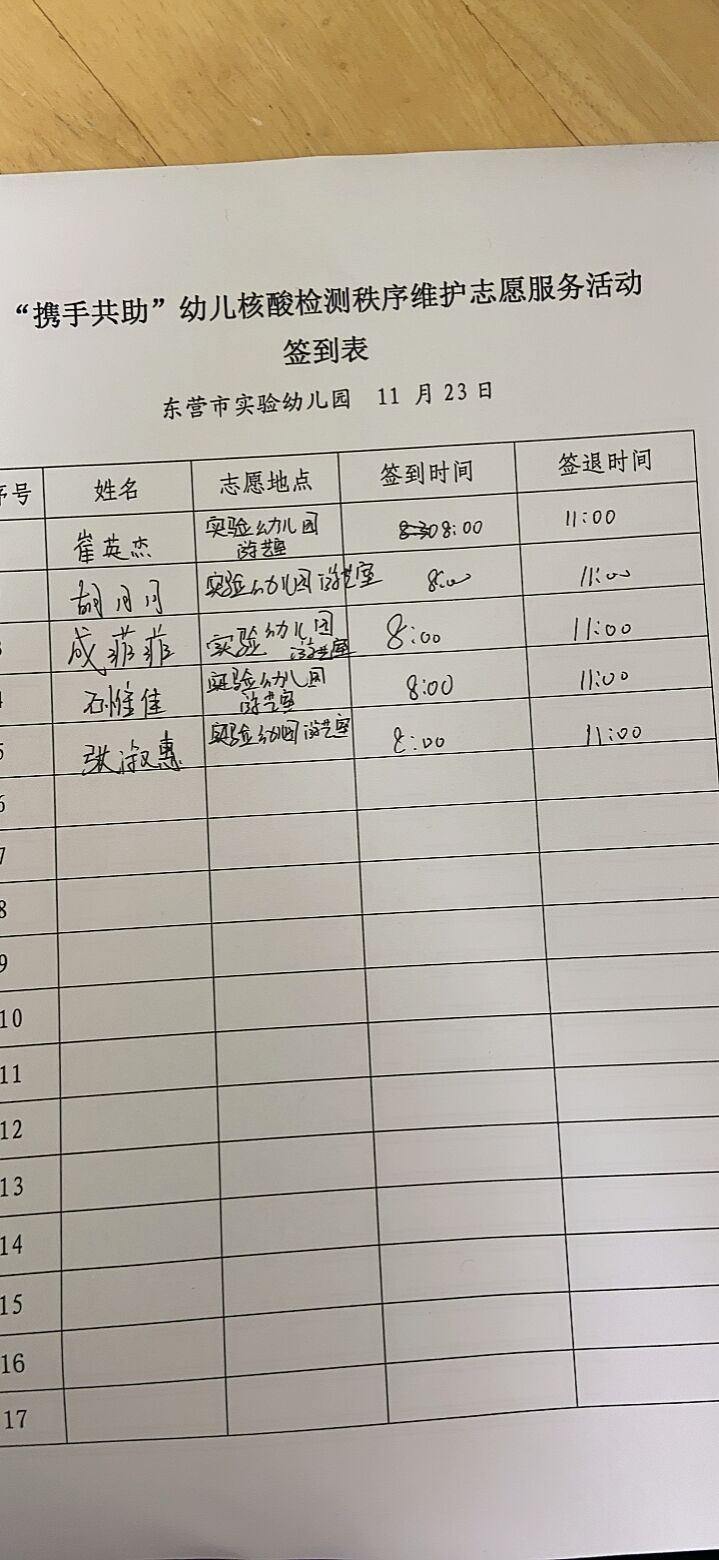 “携手共助”幼儿核酸检测秩序维护志愿服务活动
签到表
东营市实验幼儿园 11 月 23 日
序号 姓名 志愿地点 签到时间 签退时间
崔英杰 实验幼儿园 8:00 11:00
游艺室
胡月月 实验幼儿园游艺室 8:00 11:00
3 成菲菲 实验幼儿园 8:00 11:00
游艺室
4 孙惟佳 实验幼儿园 8:00 11:00
游艺室
5 张淑惠 实验幼儿园游艺室 8:00 11:00
6
7
8
9
10
11
12
13
14
15
16
17